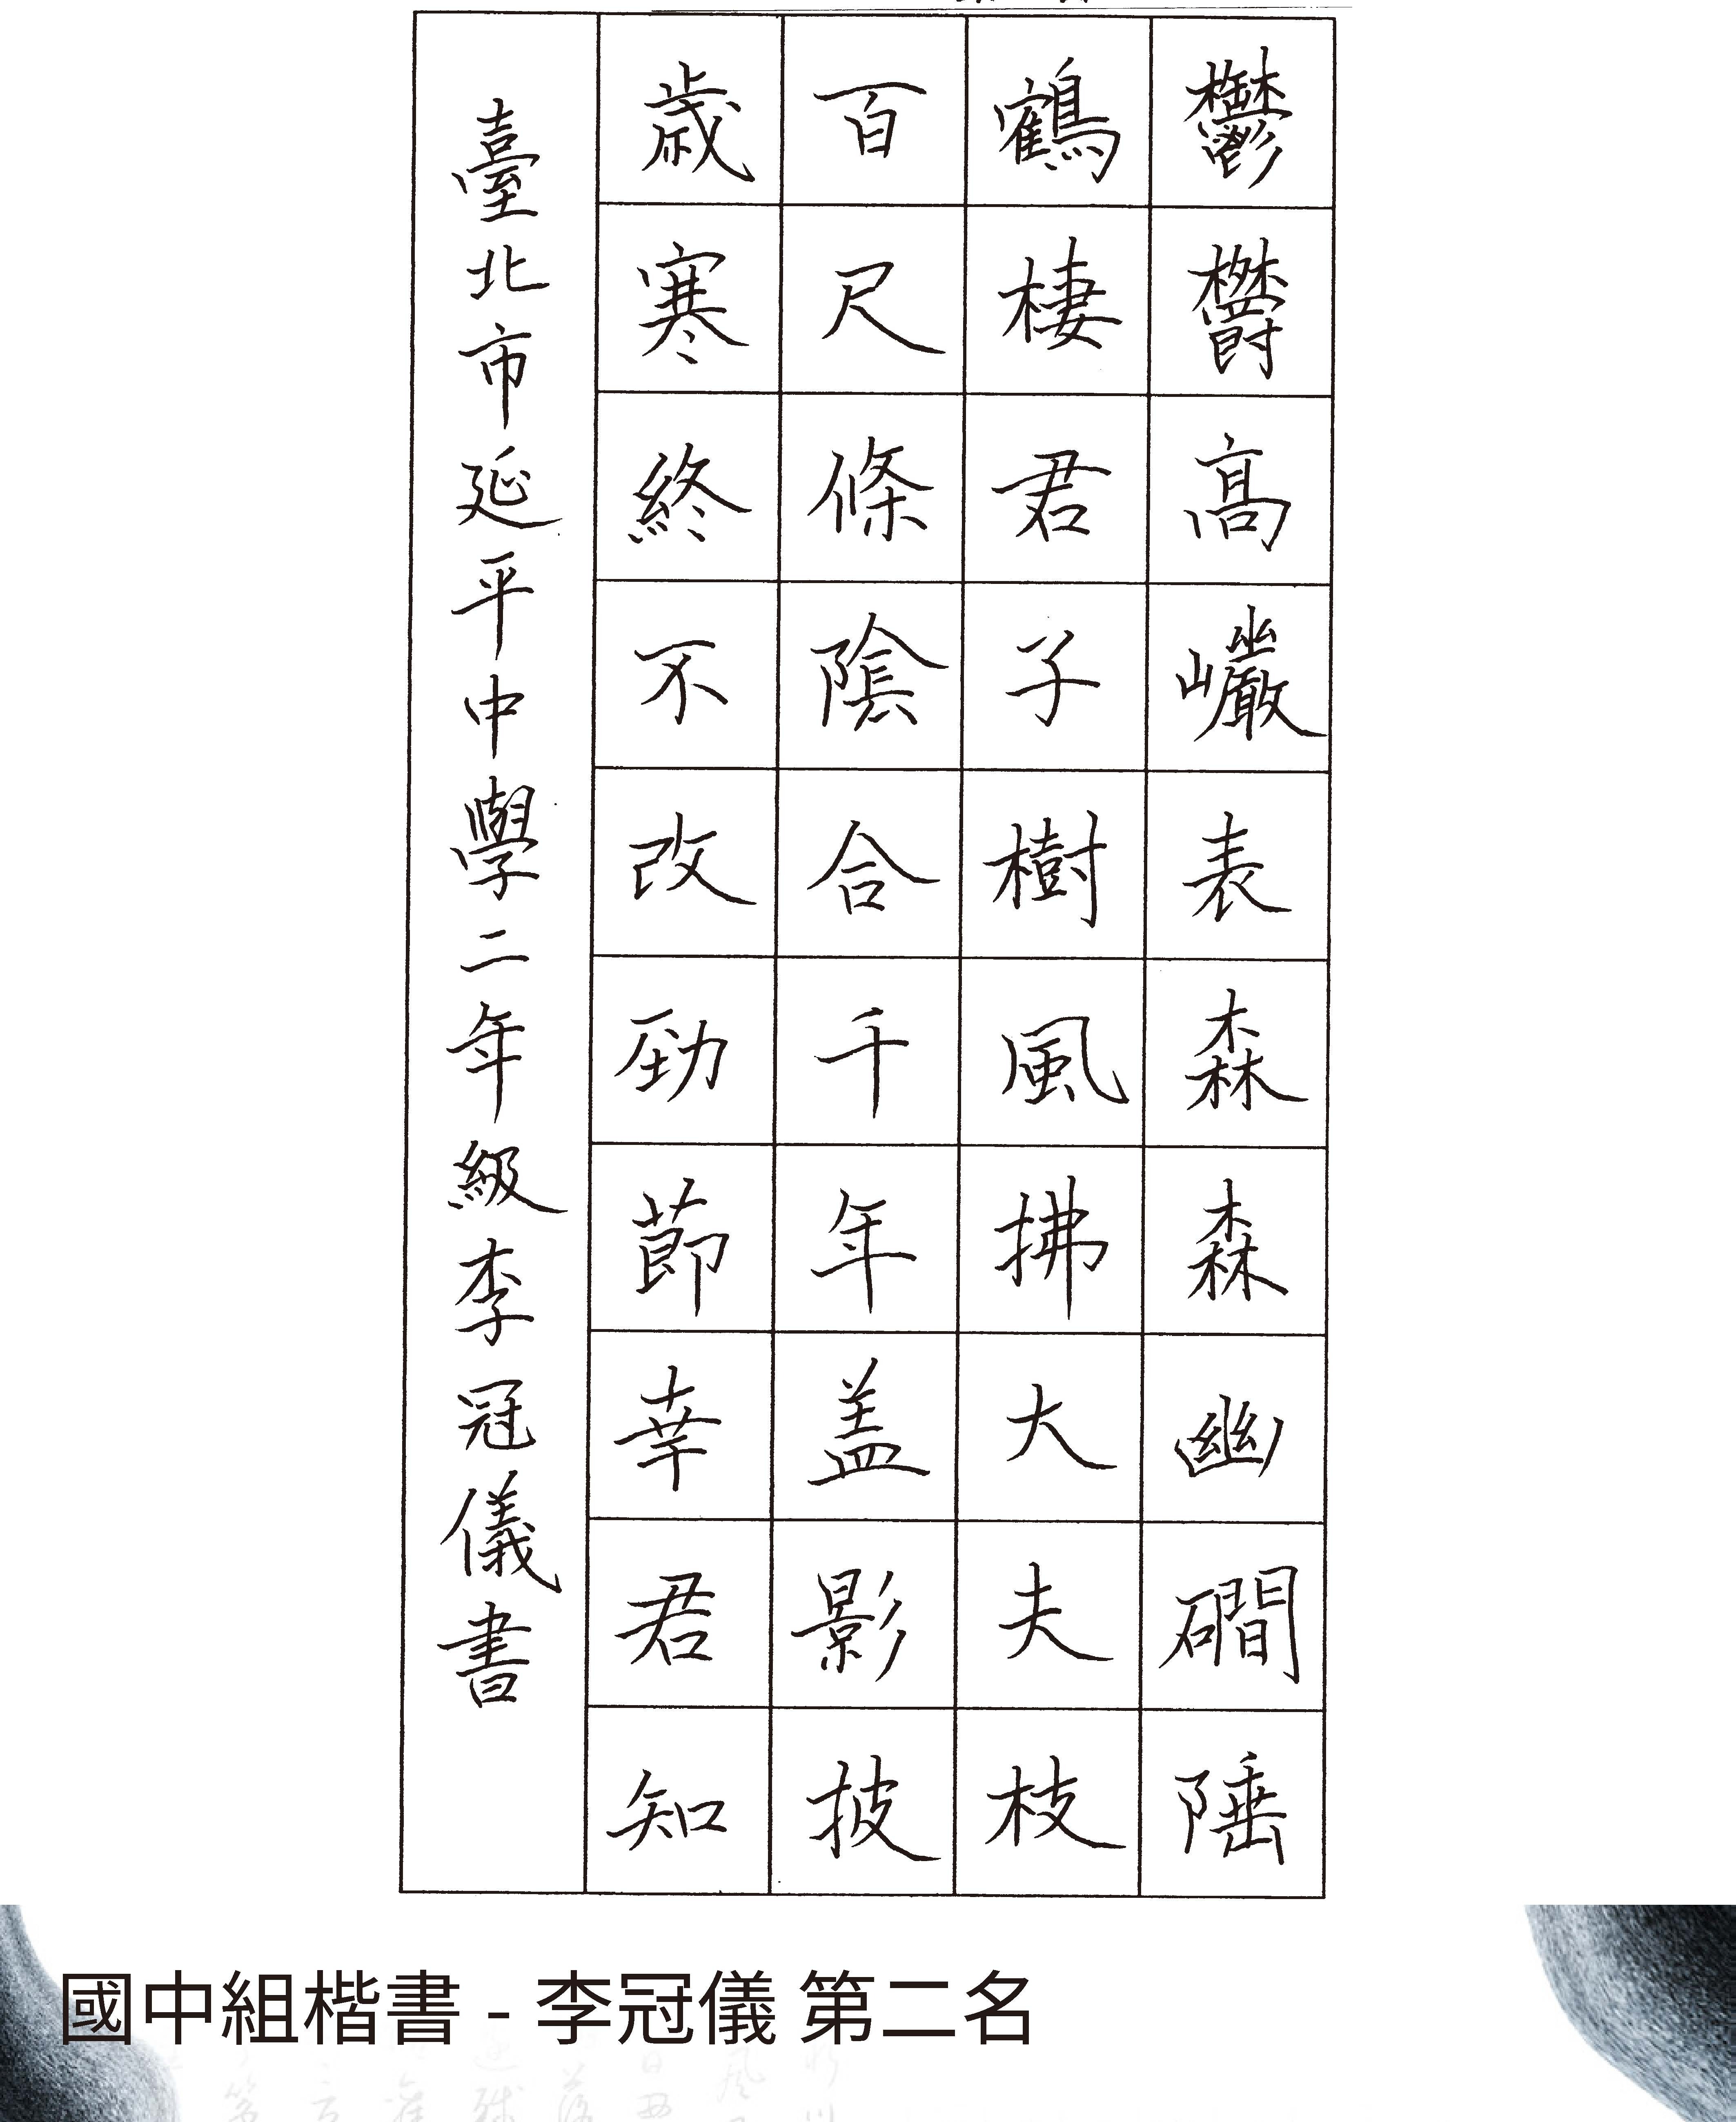 鬱鬱高巖表森森幽磵陲
鶴棲君子樹風拂大夫枝
百尺條陰合千年蓋影披
歲寒終不改勁節幸君知
臺北市延平中學二年級李冠儀書
國中組楷書 - 李冠儀 第二名